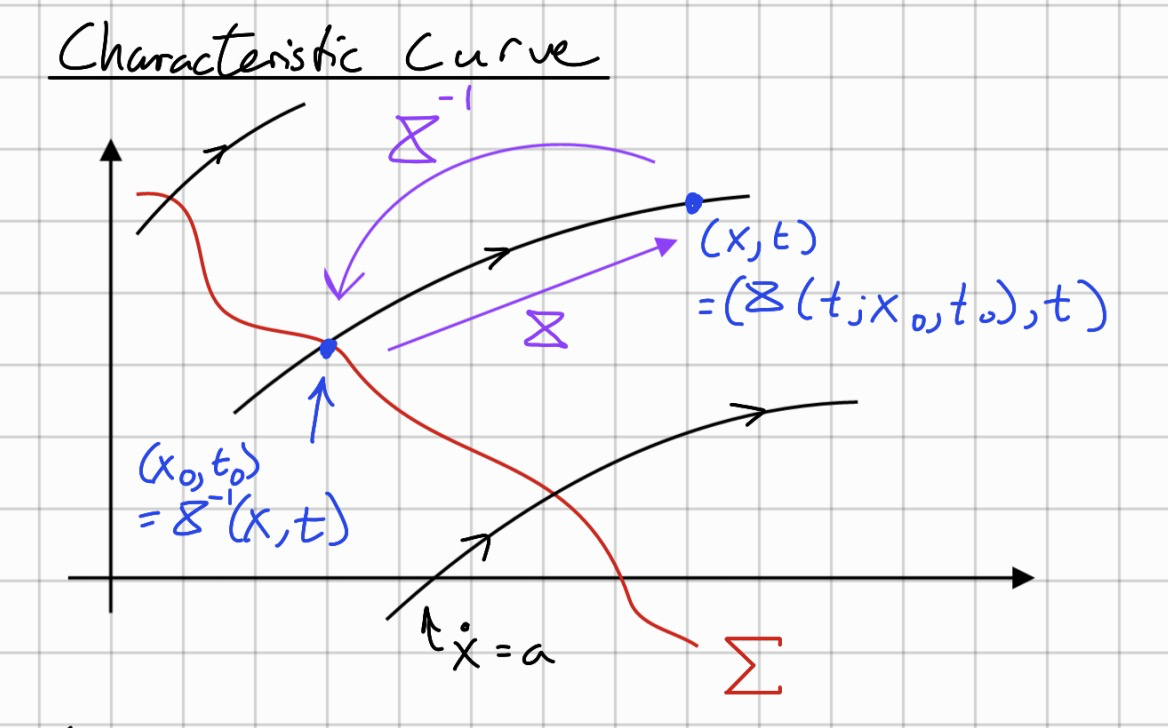 Characteristic Curve
X⁻¹
(x,t)
=(X(t;x₀,t₀),t)
X
(x₀,t₀)
=X⁻¹(x,t)
ẋ=a
Σ